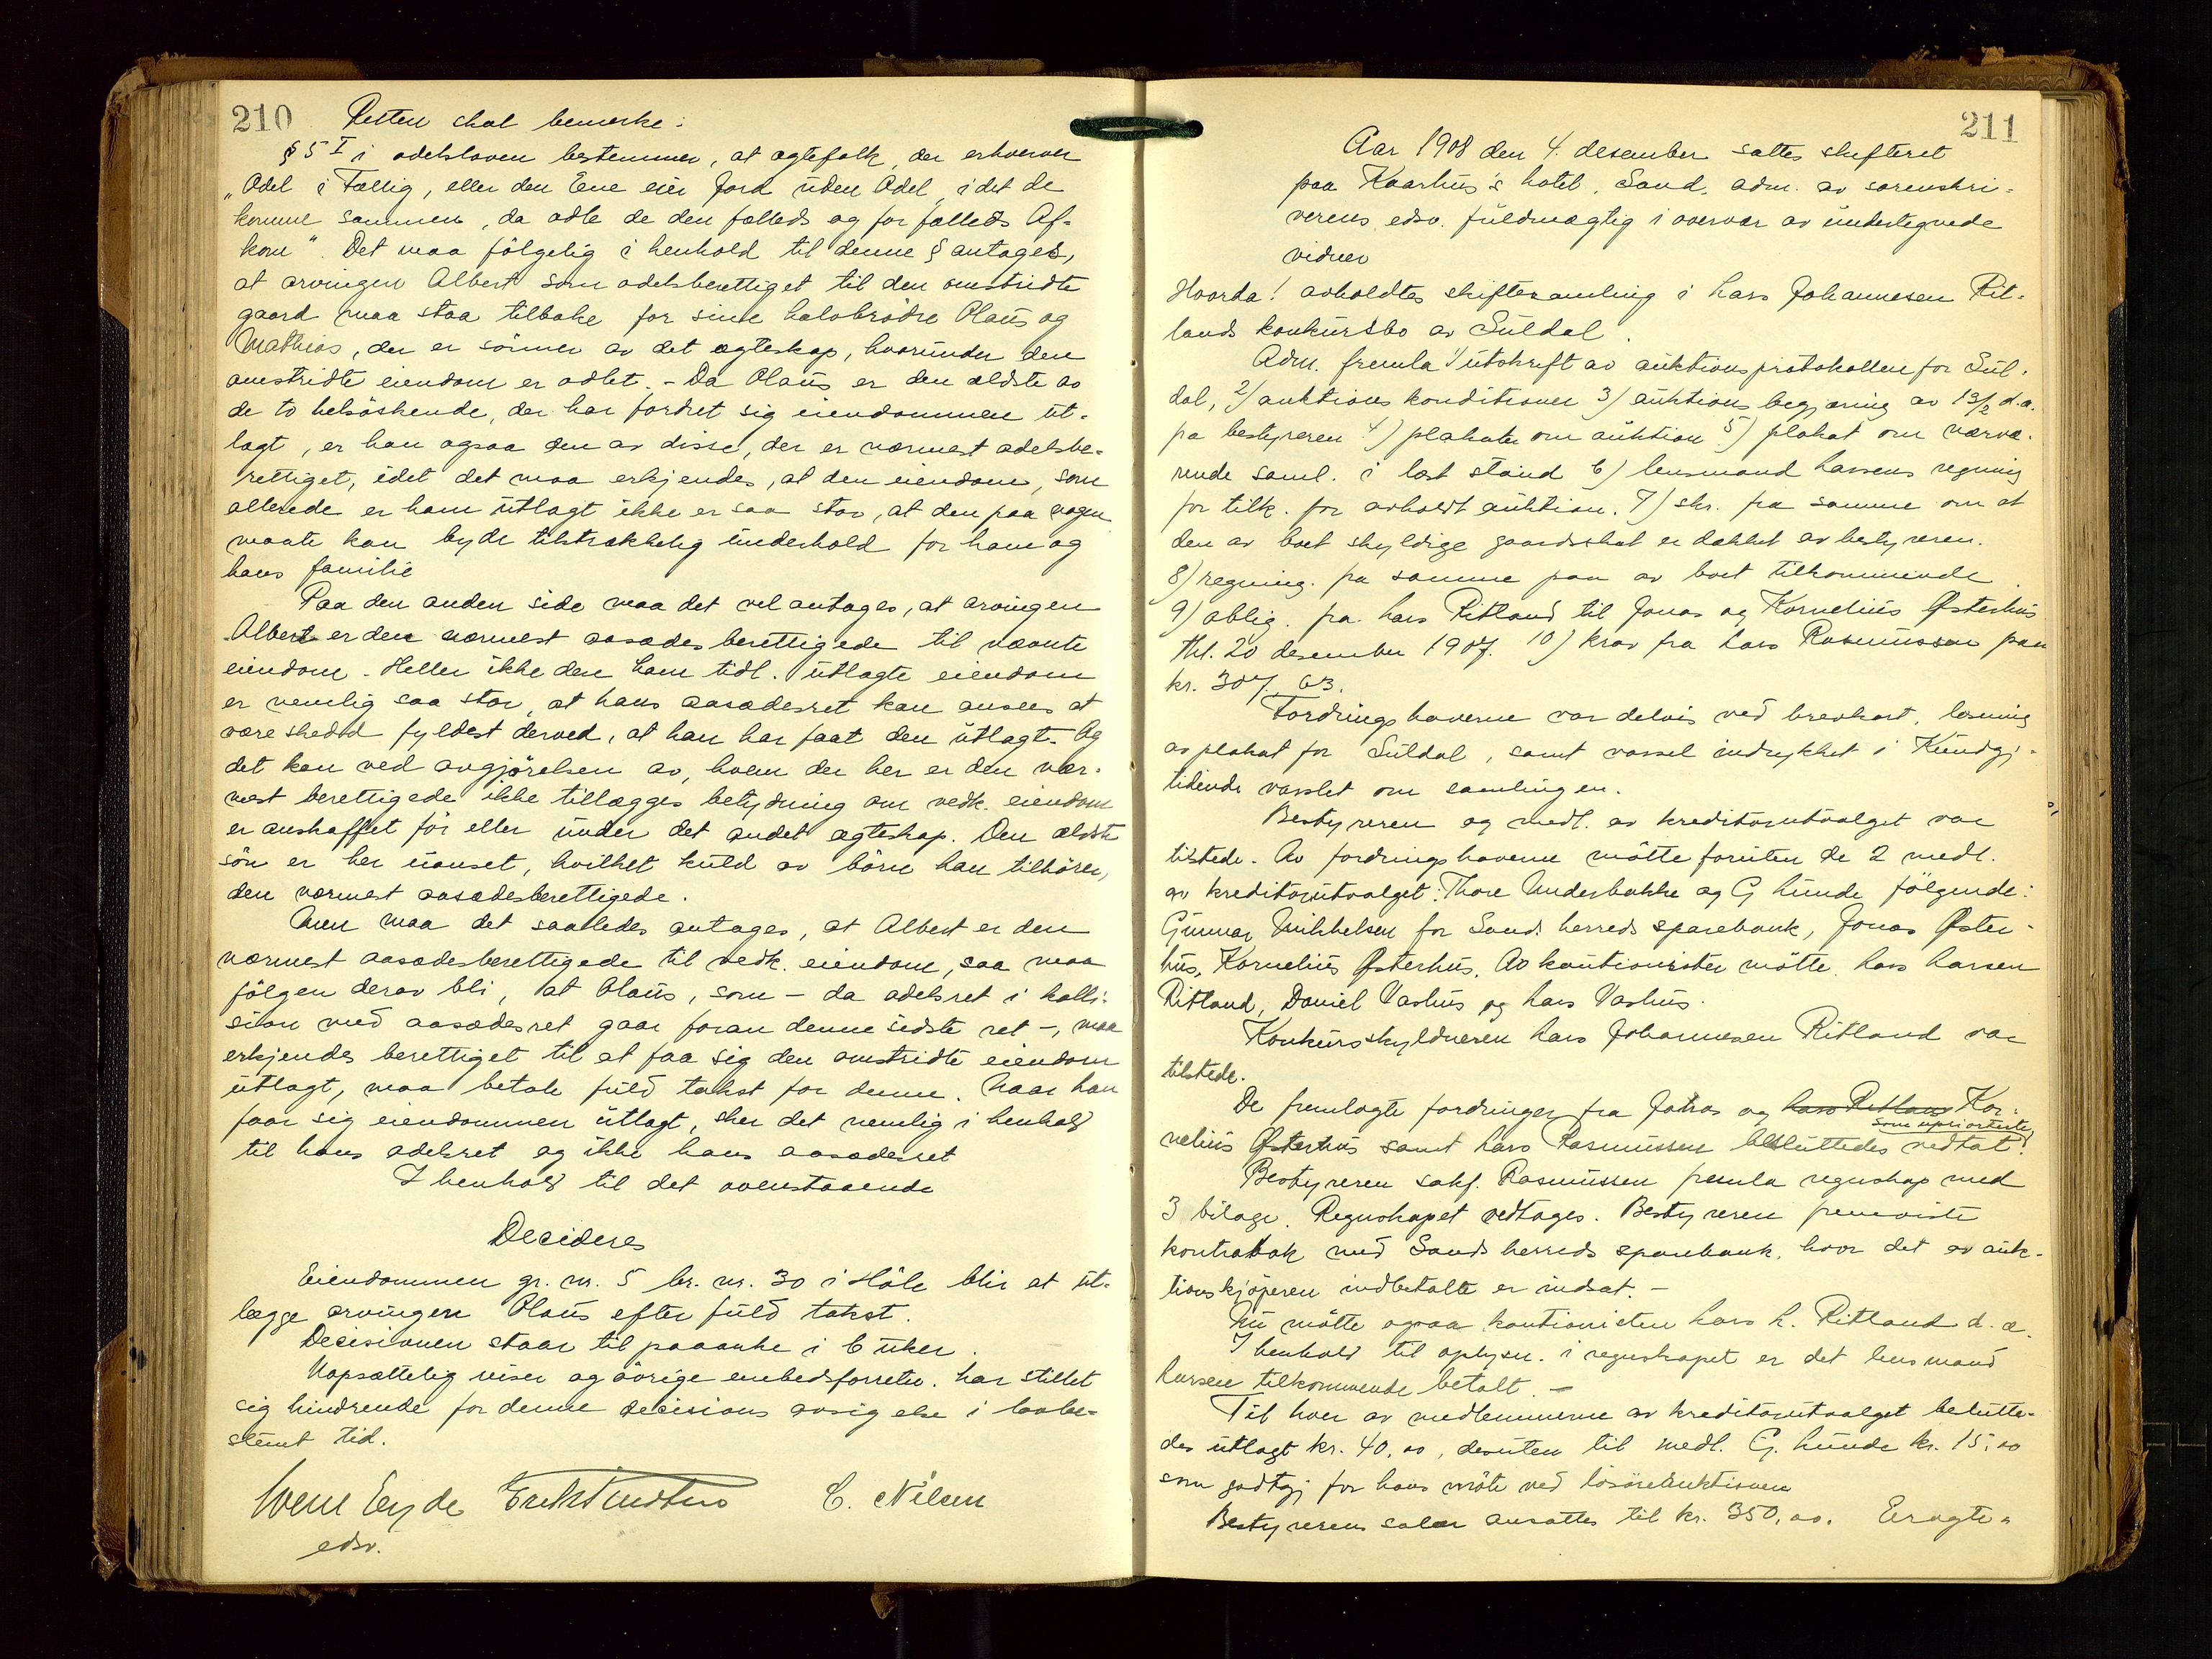 210 Retten skal bemerke:
§ 5 I i odelsloven bestemmer, at ægtefolk, der erhverver
"Odel i Fællig, eller den Ene eier Jord uden Odel, idet de
komme sammen, da odle de den fælleds og for fælleds Af=
kom". Det maa følgelig i henhold til denne § antages,
at arvingen Albert som odelsberettiget til den omstridte
gaard maa staa tilbake for sine halvbrødre Olaus og
Mathias, der er sønner av det ægteskap, hvorunder den
omstridte eiendom er odlet. - Da Olaus er den ældste av
de to helsøskende, der har fordret sig eiendommen ut-
lagt, er han ogsaa den av disse, der er nærmest odelsbe-
rettiget, idet det maa erkjendes, at den eiendom, som
allerede er ham utlagt ikke er saa stor, at den paa nogen
maate kan byde tilstrækkelig underhold for ham og
hans familie
Paa den anden side maa det vel antages, at arvingen
Albert er den nærmest aasædesberettigede til nævnte
eiendom. Heller ikke den ham tidl. utlagte eiendom
er nemlig saa stor, at hans aasædesret kan ansees at
være skedd fyldest derved, at han har faat den utlagt. Og
det kan ved avgjørelsen av, hvem der her er den nær-
mest berettigede ikke tillægges betydning om vedk. eiendom
er anskaffet før eller under det andet ægteskap. Den ældste
søn er her uanset, hvilket kuld av børn han tilhører,
den nærmest aasædesberettigede.
Men maa det saaledes antages, at Albert er den
nærmest aasædesberettigede til vedk. eiendom, saa maa
følgen derav bli, at Olaus, som - da odelsret i kolli-
sion med aasædesret gaar foran denne sidste ret -, maa
erkjendes berettiget til at faa sig den omstridte eiendom
utlagt, maa betale fuld takst for denne. Naar han
faar sig eiendommen utlagt, sker det nemlig i henhold
til hans odelsret og ikke hans aasædesret
I henhold til det ovenstaaende
Decideres
Eiendommen gr. nr. 5 br. nr. 30 i Høle blir at ut-
lægge arvingen Olaus efter fuld takst.
Decisionen staar til paaanke i 6 uker.
Uopsættelig reiser og øvrige embedsforretn. har stillet
sig hindrende for denne decisions avsigelse i lovbe-
stemt tid.
C. Nilsen
edsv.
211
Aar 1908 den 4. desember sattes skifteret
paa Kaarhus's hotel, Sand, adm. av sorenskri-
verens edsv. fuldmægtig i overvær av undertegnede
vidner
Hvorda! avholdtes skiftesamling i Lars Johannesen Rit-
lands konkursbo av Suldal.
Adm. fremla 1) utskrift av auktionsprotokollen for Sul-
dal, 2) auktions konditioner 3) auktions begjæring av 13/2 d.a.
fra bestyreren 4) plakater om auktion 5) plakat om nærvæ-
rende saml. i læst stand 6) lensmand Larsens regning
for tilk. for avholdt auktion. 7) skr. fra samme om at
den av boet skyldige gaardsskat er dækket av bestyreren.
8) regning. fra samme paa av boet tilkommende.
9) oblig. fra Lars Ritland til Jonas og Kornelius Østerhus
thl. 20 desember 1907. 10) krav fra Lars Rasmussen paa
kr. 307,63.
Fordringshaverne var delvis ved brevkort, læsning
av plakat for Suldal, samt varsel indrykket i Kundgj.-
tidende varslet om samlingen.
Bestyreren og medl. av kreditorutvalget var
tilstede. Av fordringshaverne møtte foruten de 2 medl.
av kreditorutvalget: Thore Underbakke og G Lunde følgende:
Gunnar Mikkelsen for Sands herreds sparebank, Jonas Øster-
hus, Kornelius Østerhus. Av kautionister møtte Lars Larsen
Ritland, Daniel Vashus og Lars Vashus.
Konkursskyldneren Lars Johannesen Ritland var
tilstede.
De fremlagte fordringer fra Jonas og Lars Ritland Kor-
nelius Østerhus samt Lars Rasmussen besluttedes som uprioriterte vedtat.
Bestyreren sakf. Rasmussen fremla regnskap med
3 bilage. Regnskapet vedtages. Bestyreren fremviste
kontrabok med Sands herreds sparebank, hvor det av auk-
tionskjøperen indbetalte er indsat. -
Nu møtte ogsaa kautionisten Lars L. Ritland d. æ.
I henhold til oplysn. i regnskapet er det lensmand
Larsen tilkommende betalt. -
Til hver av medlemmerne av kreditorutvalget beslutte-
des utlagt kr. 40,00, desuten til medl. G. Lunde kr. 15,00
som godtgj for hans møte ved løsøreauktionen
Bestyrerens salær ansattes til kr. 350,00. Eragte-